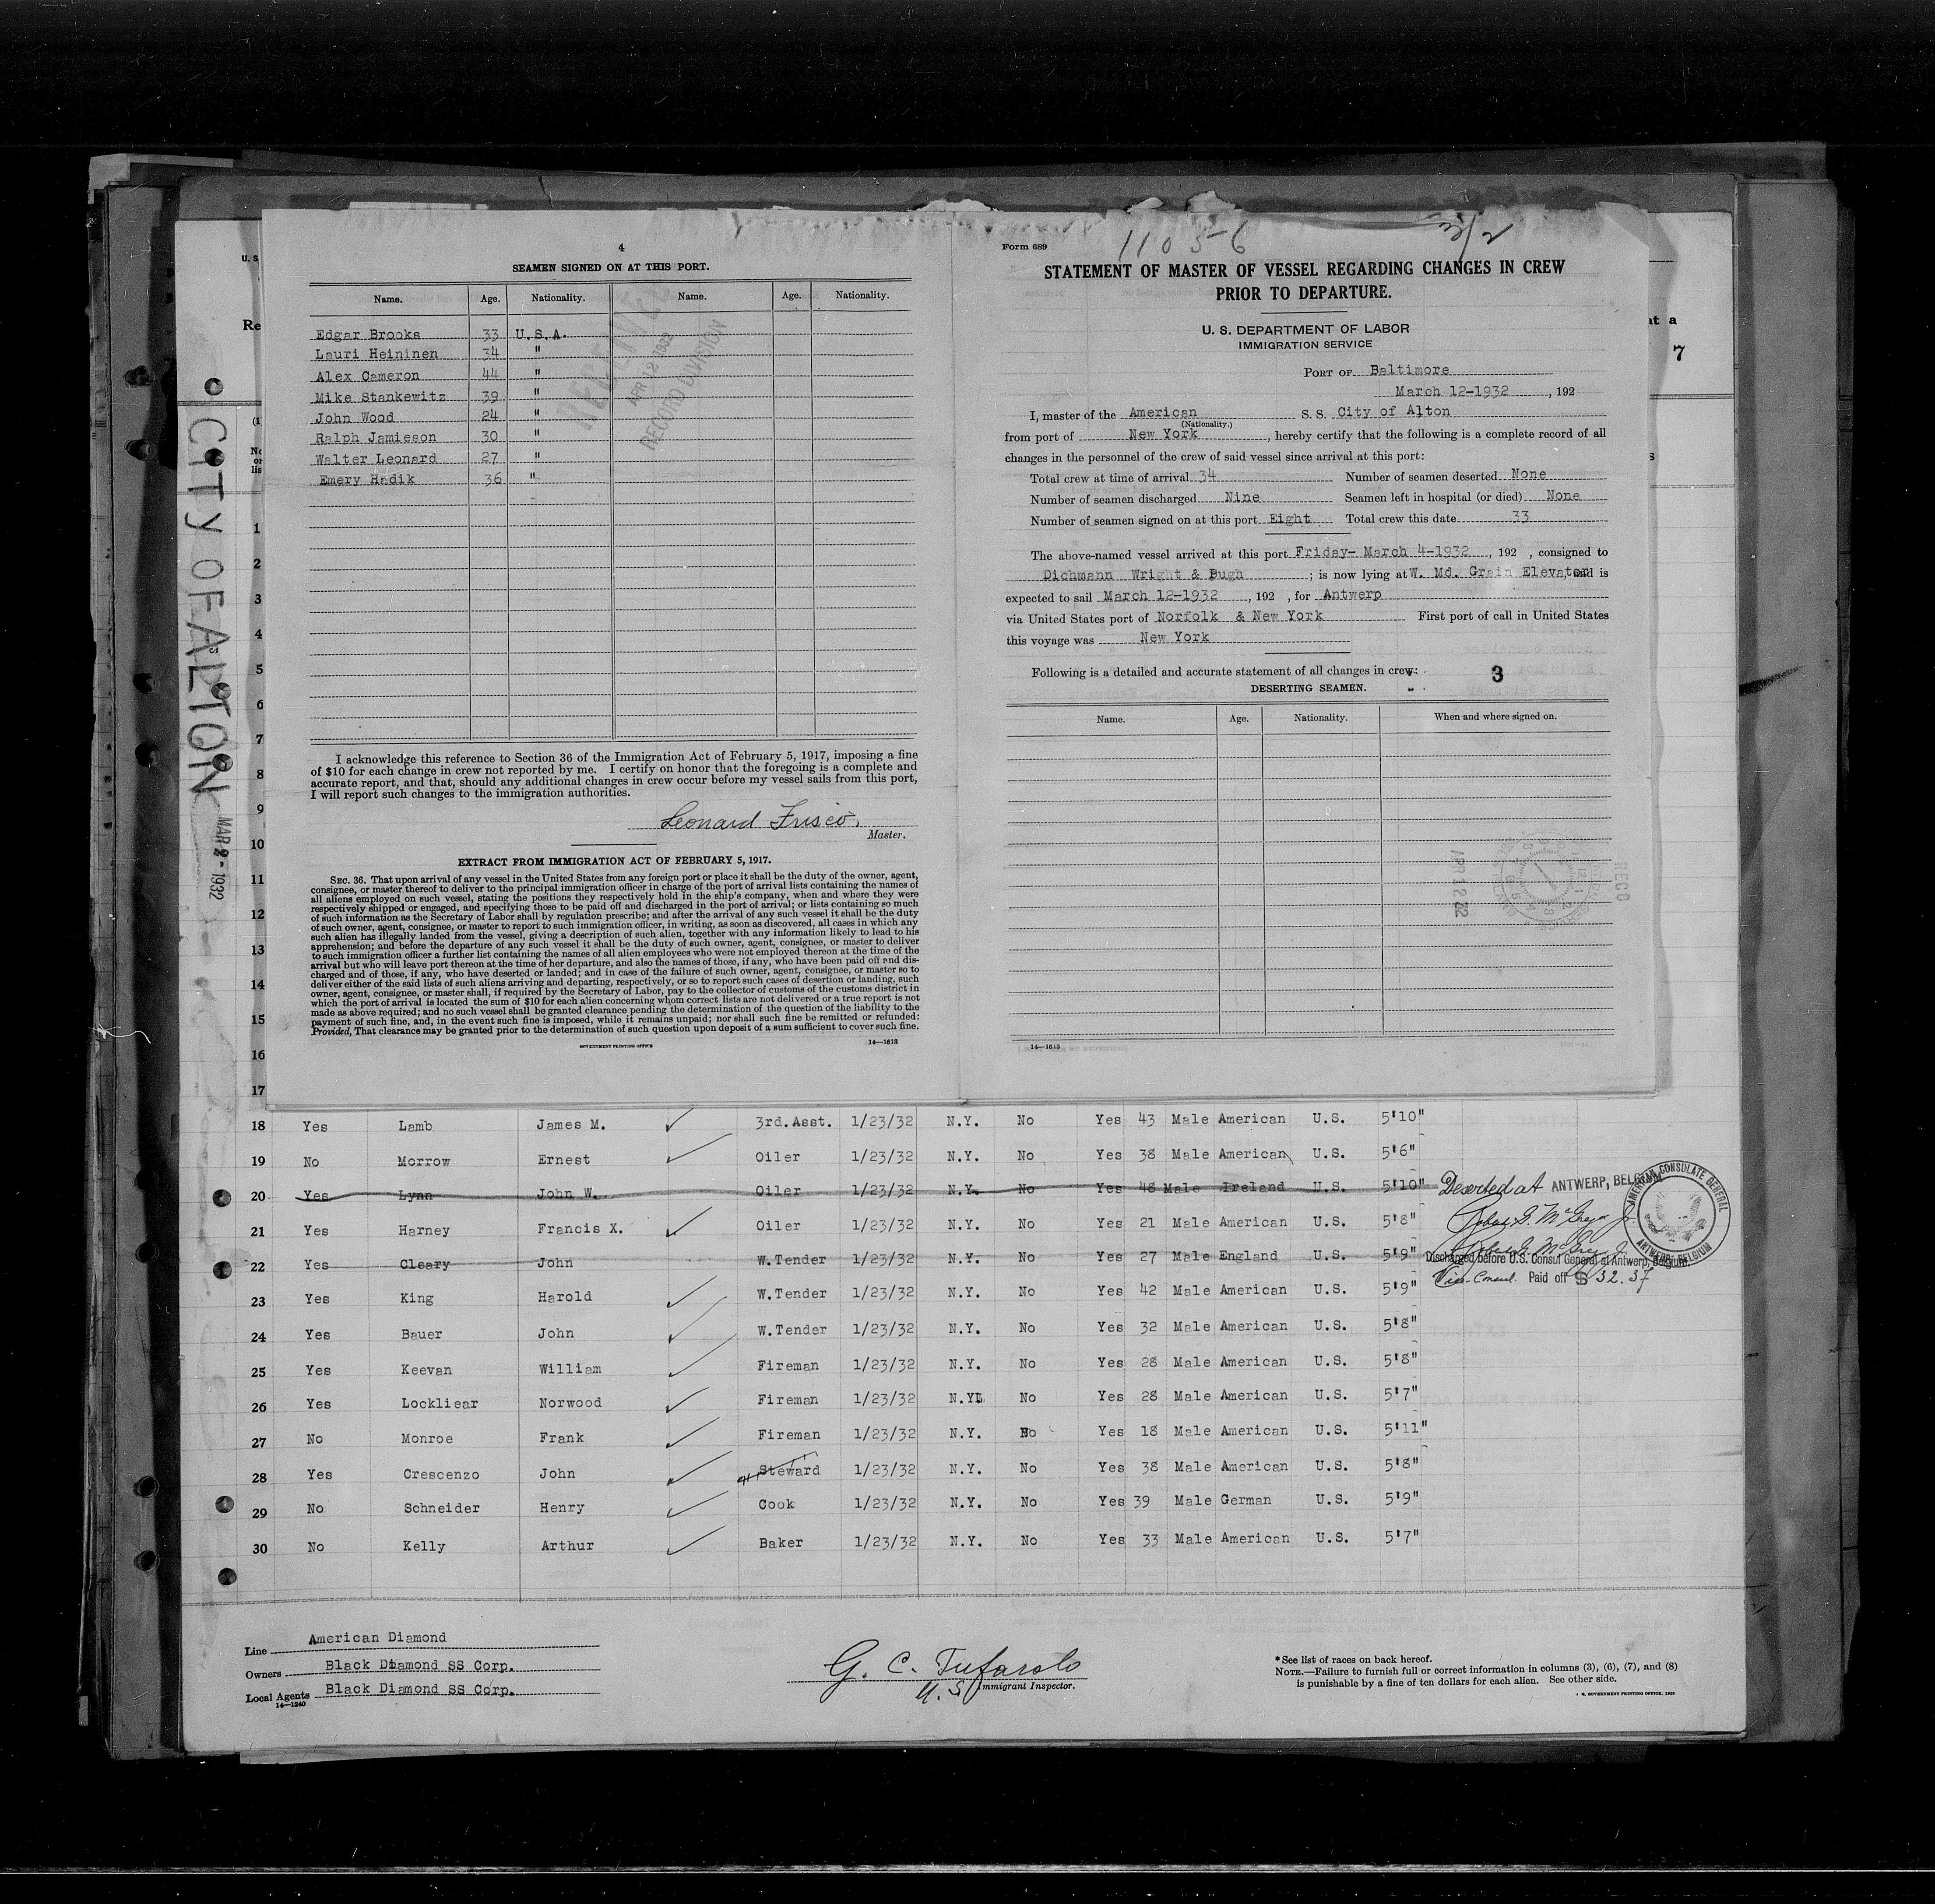 4
SEAMEN SIGNED ON AT THIS PORT.
Name. Age. Nationality. Name. Age. Nationality.
Edgar Brooks 33 U.S.A.
Lauri Heininen 34 "
Alex Cameron 44 "
Mike Stankewitz 39 "
John Wood 24 "
Ralph Jamieson 30 "
Walter Leonard 27 "
Emery Hadik 36 "
RECEIVED
APR 12 1932
RECORD DIVISION
I acknowledge this reference to Section 36 of the Immigration Act of February 5, 1917, imposing a fine
of $10 for each change in crew not reported by me. I certify on honor that the foregoing is a complete and
accurate report, and that, should any additional changes in crew occur before my vessel sails from this port,
I will report such changes to the immigration authorities.
Leonard Frisco
Master.
EXTRACT FROM IMMIGRATION ACT OF FEBRUARY 5, 1917.
SEC. 36. That upon arrival of any vessel in the United States from any foreign port or place it shall be the duty of the owner, agent,
consignee, or master thereof to deliver to the principal immigration officer in charge of the port of arrival lists containing the names of
all aliens employed on such vessel, stating the positions they respectively hold in the ship's company, when and where they were
respectively shipped or engaged, and specifying those to be paid off and discharged in the port of arrival; or lists containing so much
of such information as the Secretary of Labor shall by regulation prescribe; and after the arrival of any such vessel it shall be the duty
of such owner, agent, consignee, or master to report to such immigration officer, in writing, as soon as discovered, all cases in which any
such alien has illegally landed from the vessel, giving a description of such alien, together with any information likely to lead to his
apprehension; and before the departure of any such vessel it shall be the duty of such owner, agent, consignee, or master to deliver
to such immigration officer a further list containing the names of all alien employees who were not employed thereon at the time of the
arrival but who will leave port thereon at the time of her departure, and also the names of those, if any, who have been paid off and dis-
charged and of those, if any, who have deserted or landed; and in case of the failure of such owner, agent, consignee, or master so to
deliver either of the said lists of such aliens arriving and departing, respectively, or so to report such cases of desertion or landing, such
owner, agent, consignee, or master shall, if required by the Secretary of Labor, pay to the collector of customs of the customs district in
which the port of arrival is located the sum of $10 for each alien concerning whom correct lists are not delivered or a true report is not
made as above required; and no such vessel shall be granted clearance pending the determination of the question of the liability to the
payment of such fine, and, in the event such fine is imposed, while it remains unpaid; nor shall such fine be remitted or refunded:
Provided, That clearance may be granted prior to the determination of such question upon deposit of a sum sufficient to cover such fine.
GOVERNMENT PRINTING OFFICE 14—1613
Form 689
11056
3/2
STATEMENT OF MASTER OF VESSEL REGARDING CHANGES IN CREW
PRIOR TO DEPARTURE.
U. S. DEPARTMENT OF LABOR
IMMIGRATION SERVICE
PORT OF Baltimore
March 12-1932, 192
I, master of the American S. S. City of Alton
(Nationality.)
from port of New York, hereby certify that the following is a complete record of all
changes in the personnel of the crew of said vessel since arrival at this port:
Total crew at time of arrival 34 Number of seamen deserted None
Number of seamen discharged Nine Seamen left in hospital (or died) None
Number of seamen signed on at this port Eight Total crew this date 33
The above-named vessel arrived at this port Friday- March 4-1932, 192 , consigned to
Dichmann Wright & Pugh ; is now lying at W. Md. Grain Elevator, and is
expected to sail March 12-1932, 192 , for Antwerp
via United States port of Norfolk & New York First port of call in United States
this voyage was New York
Following is a detailed and accurate statement of all changes in crew:
3
DESERTING SEAMEN.
Name. Age. Nationality. When and where signed on.
REC'D
APR 12 32
14—1613
U. S.
Re
at a
7
CITY OF ALTON
MAR 2 - 1932
1
2
3
4
5
6
7
8
9
10
11
12
13
14
15
16
17
18 Yes Lamb James M. 3rd.Asst. 1/23/32 N.Y. No Yes 43 Male American U.S. 5'10"
19 No Morrow Ernest Oiler 1/23/32 N.Y. No Yes 38 Male American U.S. 5'6"
20 Yes Lynn John W. Oiler 1/23/32 N.Y. No Yes 48 Male Ireland U.S. 5'10" Deserted at ANTWERP, BELGIUM
21 Yes Harney Francis X. Oiler 1/23/32 N.Y. No Yes 21 Male American U.S. 5'8"
22 Yes Cleary John W.Tender 1/23/32 N.Y. No Yes 27 Male England U.S. 5'9" Discharged before U.S. Consul General at Antwerp, Belgium.
Vice-Consul. Paid off $ 32.37
AMERICAN CONSULATE GENERAL
ANTWERP, BELGIUM
23 Yes King Harold W.Tender 1/23/32 N.Y. No Yes 42 Male American U.S. 5'9"
24 Yes Bauer John W.Tender 1/23/32 N.Y. No Yes 32 Male American U.S. 5'8"
25 Yes Keevan William Fireman 1/23/32 N.Y. No Yes 28 Male American U.S. 5'8"
26 Yes Lockliear Norwood Fireman 1/23/32 N.Y. No Yes 28 Male American U.S. 5'7"
27 No Monroe Frank Fireman 1/23/32 N.Y. No Yes 18 Male American U.S. 5'11"
28 Yes Crescenzo John Steward 1/23/32 N.Y. No Yes 38 Male American U.S. 5'8"
29 No Schneider Henry Cook 1/23/32 N.Y. No Yes 39 Male German U.S. 5'9"
30 No Kelly Arthur Baker 1/23/32 N.Y. No Yes 33 Male American U.S. 5'7"
Line American Diamond
Owners Black Diamond SS Corp.
Local Agents Black Diamond SS Corp.
14—1240
G. C. Tufarolo
U. S. Immigrant Inspector.
* See list of races on back hereof.
NOTE.—Failure to furnish full or correct information in columns (3), (6), (7), and (8)
is punishable by a fine of ten dollars for each alien. See other side.